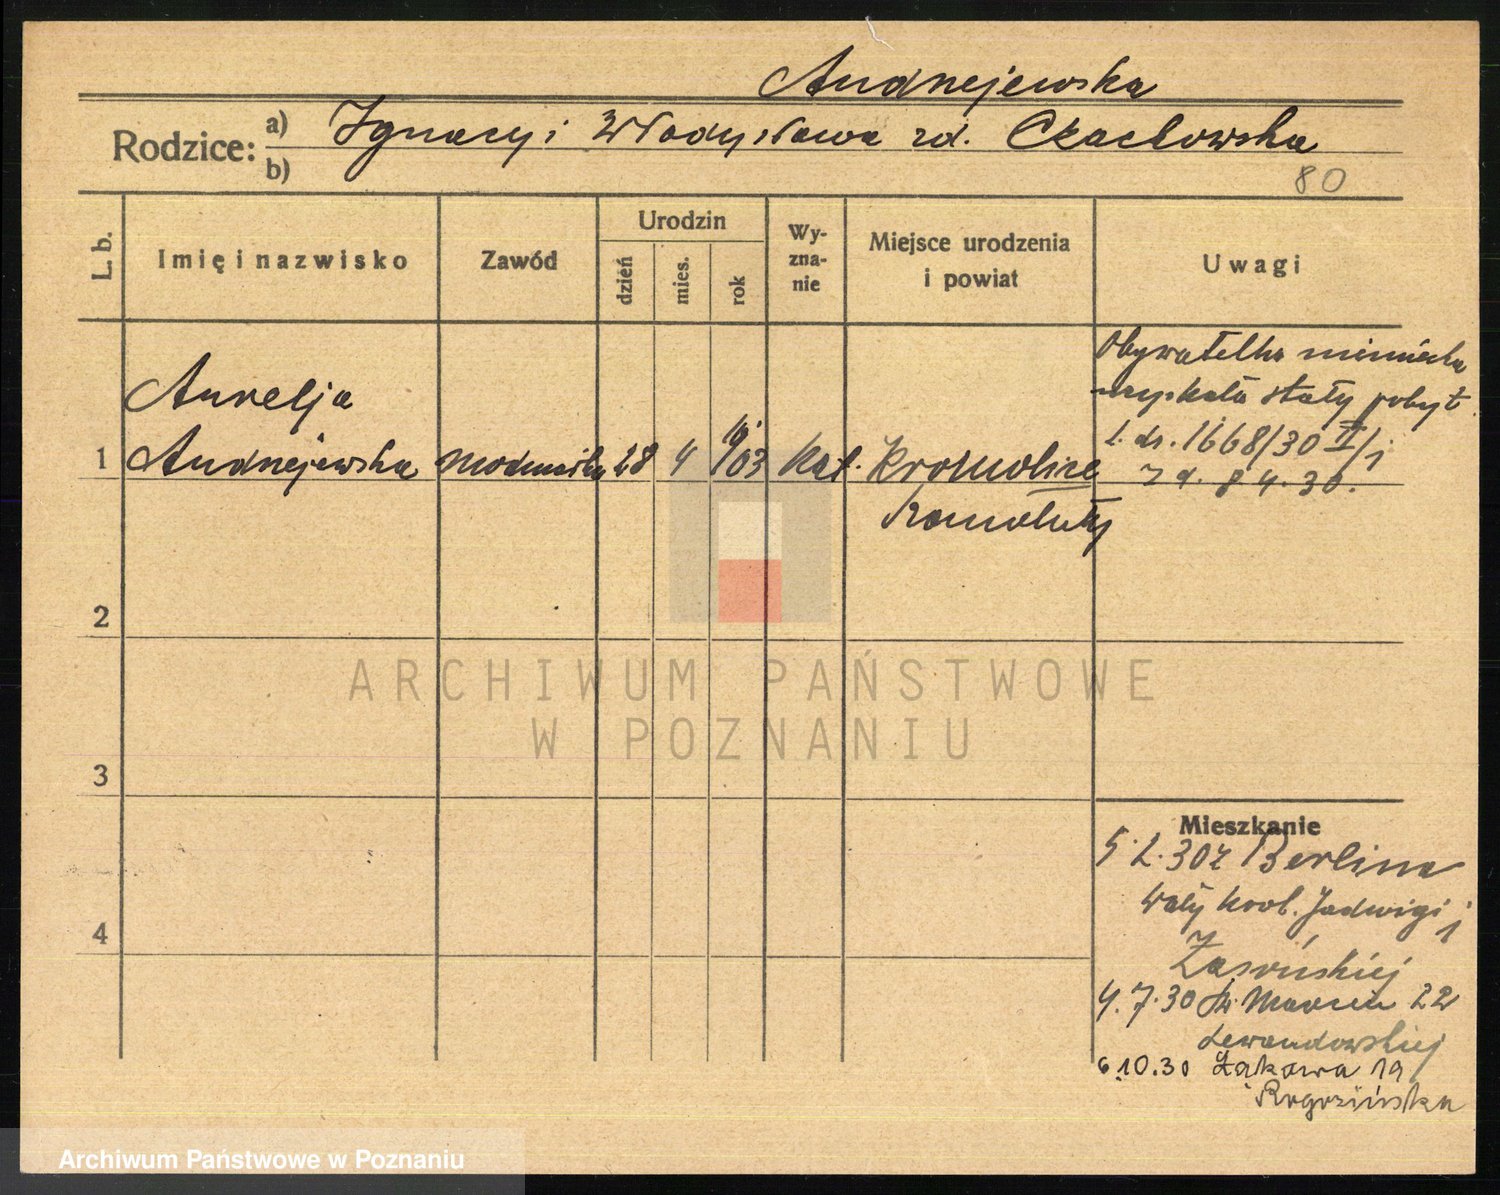 Andrzejewska
Rodzice: a) Ignacy i Władysława zd. Czachowska
b)
80
L. b.
Imię i nazwisko
Zawód
Urodzin
dzień
mies.
rok
Wy-
zna-
nie
Miejsce urodzenia
i powiat
Uwagi
Obywatelka niemiecka
uzyskała stały pobyt
l. dz. 1668/30 II/1
z d. 8 4. 30.
Aurelja
1 Andrzejewska modniarka 28 4 1903 kat. Kromolice
2
3
4
ARCHIWUM PAŃSTWOWE
W POZNANIU
Mieszkanie
5.2.30 z Berlina
Wały król. Jadwigi 1
4.7.30 Św. Marcin 22
Lewandowskiej
6.10.30 Łąkowa 19
Archiwum Państwowe w Poznaniu